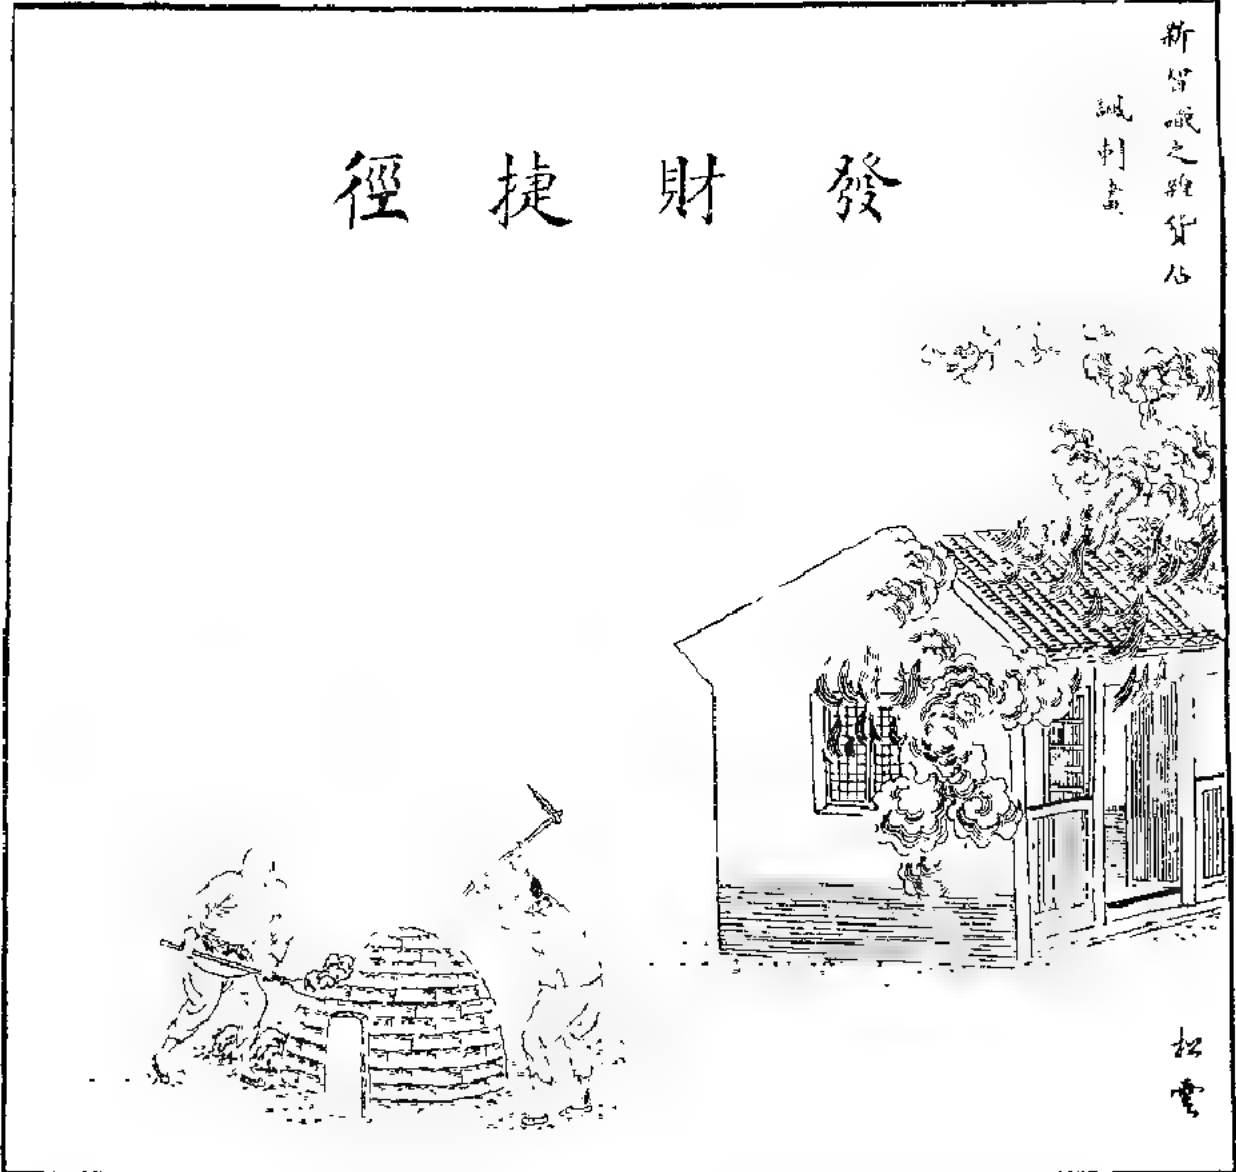 新智識之雜貨店
諷刺畫
發財捷徑
松雲